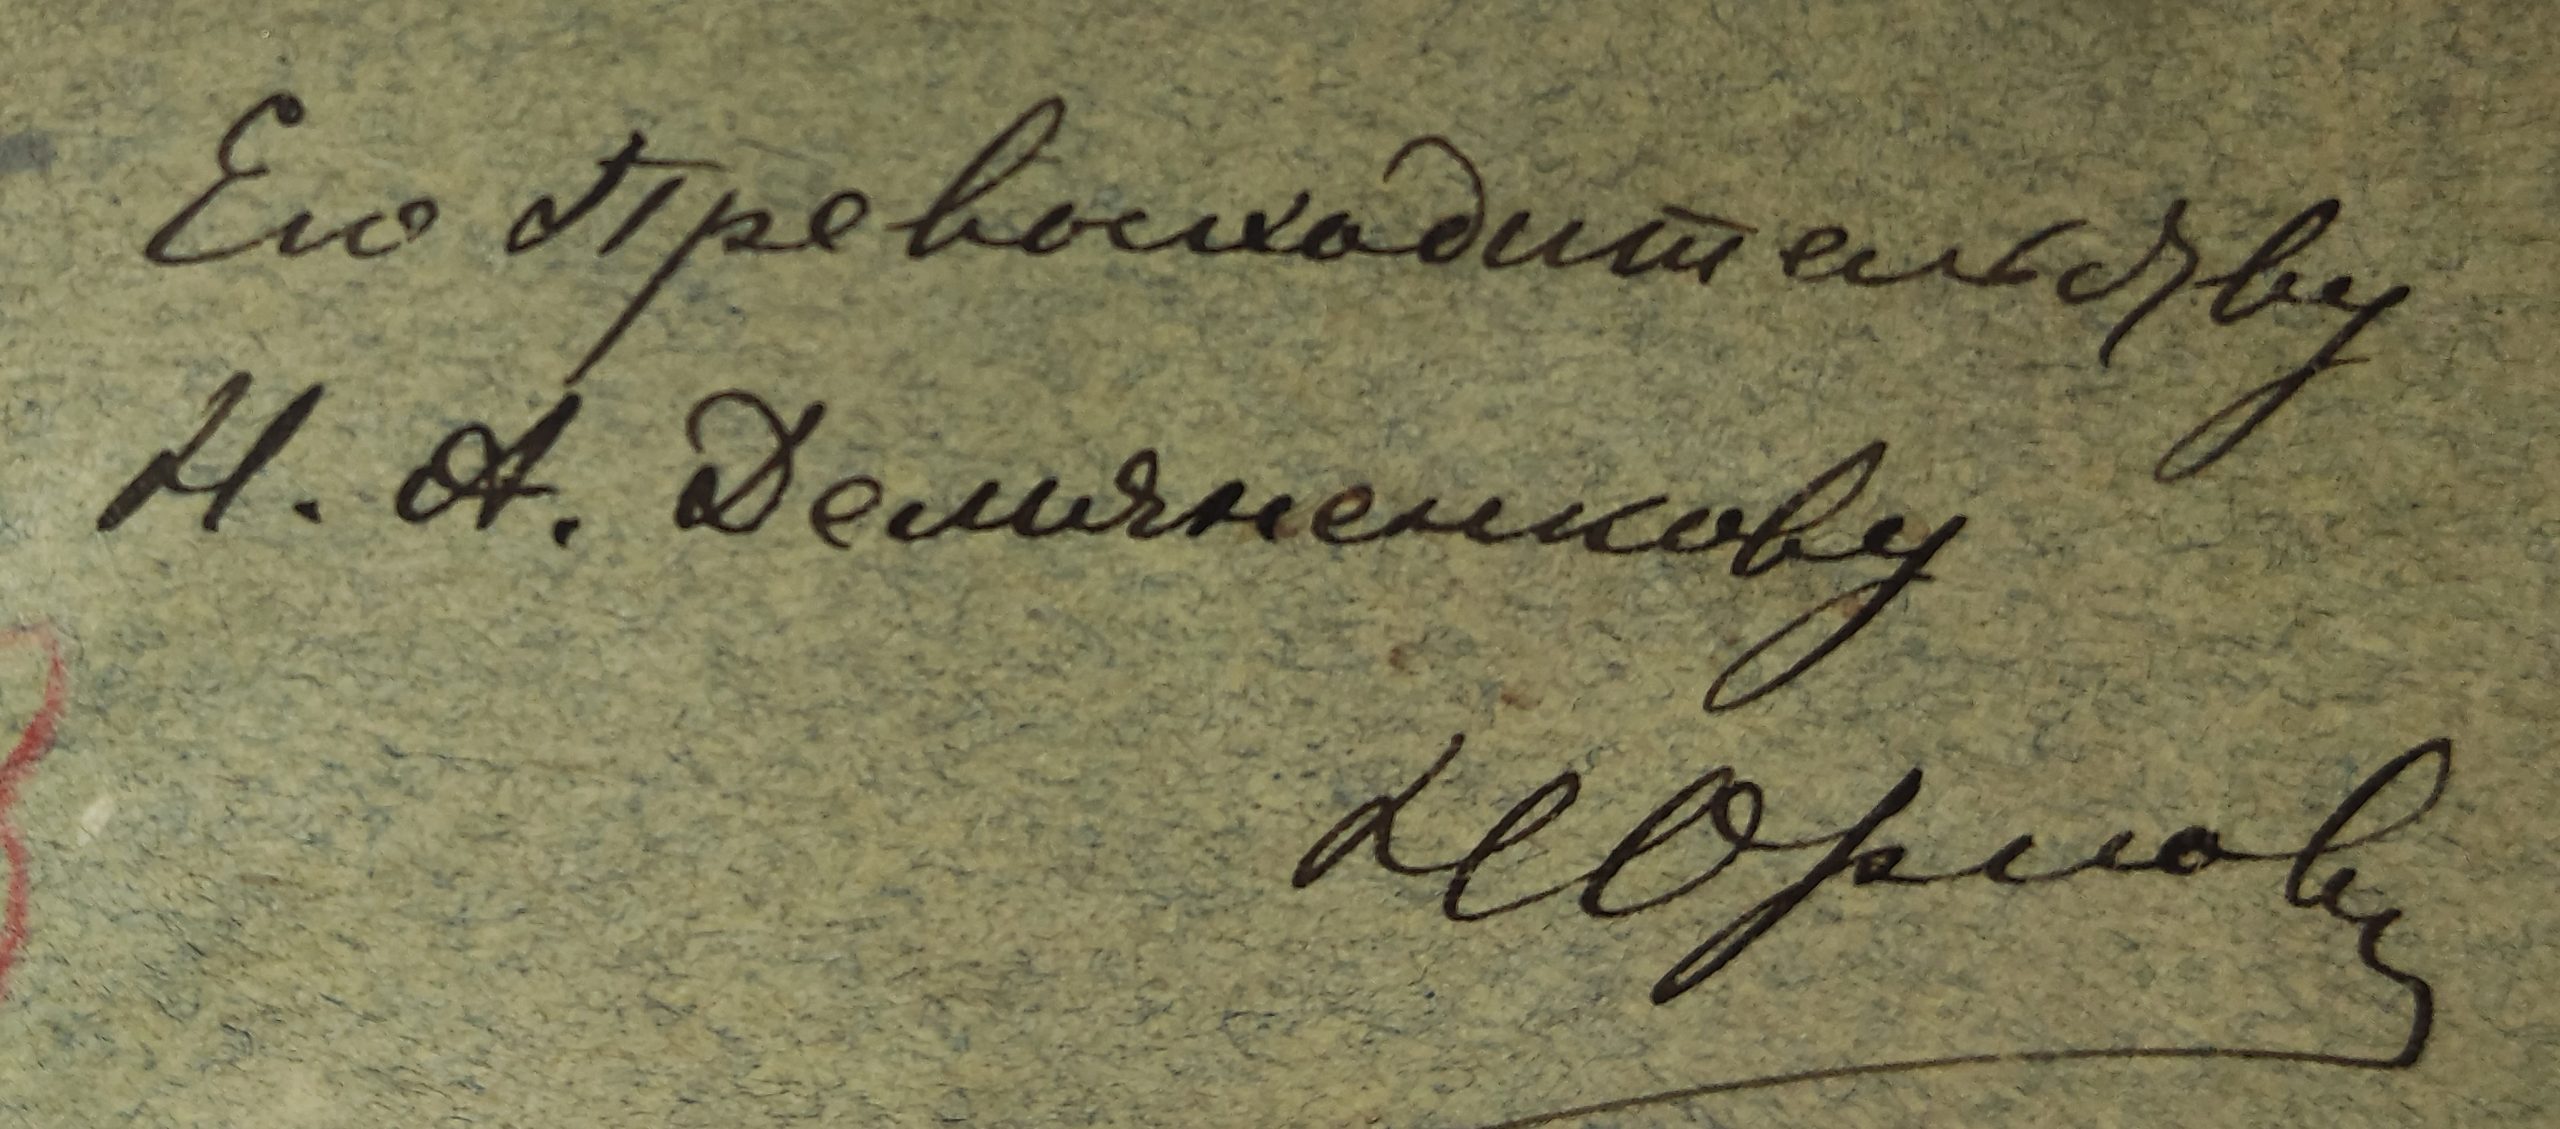 Его Превосходительству
Н. А. Демяненкову
Н Орловъ